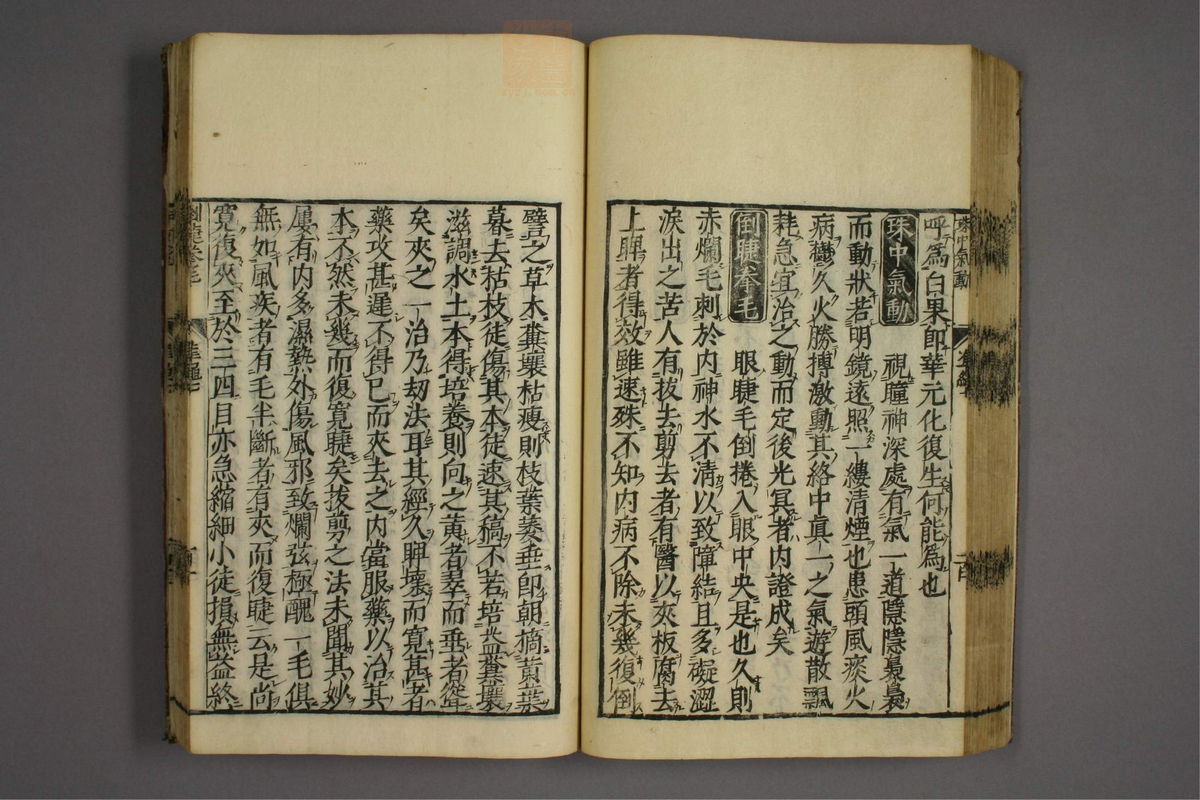 呼為白果即華元化復生何能為也
珠中氣動　視瞳神深處有氣一道隱隱裊裊
而動狀若明鏡遠照一縷清煙也患頭風痰火
病欝久火勝搏激動其絡中真一之氣遊散飄
耗急宜治之動而定後光冥者内證成矣
倒睫拳毛　眼睫毛倒捲入眼中央是也久則
赤爛毛刺於内神水不清以致障結且多礙澀
淚出之苦人有拔去剪去者有醫以夾板腐去
上睥者得效雖速殊不知内病不除未幾復倒
譬之草木糞壤枯瘦則枝葉萎垂即朝摘黄葉
暮去枯枝徒傷其本徒速其稿不若培益糞壤
滋調水土本得培養則向之黄者萃而垂者聳
矣夾之一治乃刧法耳其經久睥壞而寬甚者
藥攻甚遲不得已而夾去之内當服藥以治其
本不然未幾而復寛㬠矣拔剪之法未聞其妙
屢有内多濕熱外傷風邪致爛弦極醜一毛俱
無如風疾者有毛半斷者有夾而復睫云是尚
寛復夾至於三四目亦急縮細小徒損無益終